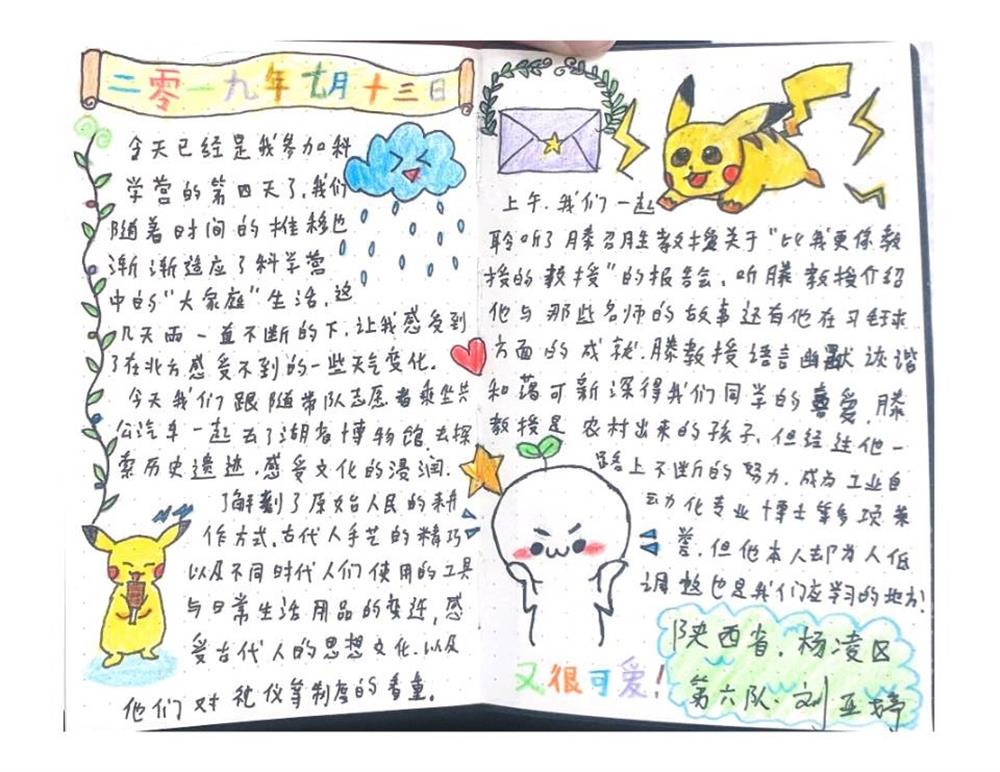 二零一九年七月十三日
今天已经是我参加科
学营的第四天了,我们
随着时间的推移也
渐渐适应了科学营
中的“大家庭”生活,这
几天雨一直不断的下,让我感受到
了在北方感受不到的一些天气变化.
今天我们跟随带队志愿者乘坐共
公汽车一起去了湖省博物馆去探
索历史遗迹.感受文化的浸润.
了解到了原始人民的耕
作方式,古代人手艺的精巧
以及不同时代人们使用的工具
与日常生活用品的变迁,感
受古代人的思想文化.以及
他们对礼仪等制度的看重。
上午.我们一起
聆听了滕召胜教授关于“比我更像教
授的教授”的报告会,听滕教授介绍
他与那些名师的故事还有他在习毛球
方面的成就.滕教授语言幽默诙谐
和蔼可新深得我们同学的喜爱,滕
教授是农村出来的孩子.但经过他一
路上不断的努力.成为工业自
动化专业博士等多项荣
誉.但他本人却为人低
调,这也是我们应学习的地方.
又很可爱!
陕西省.杨凌区
第六队.刘亚婷